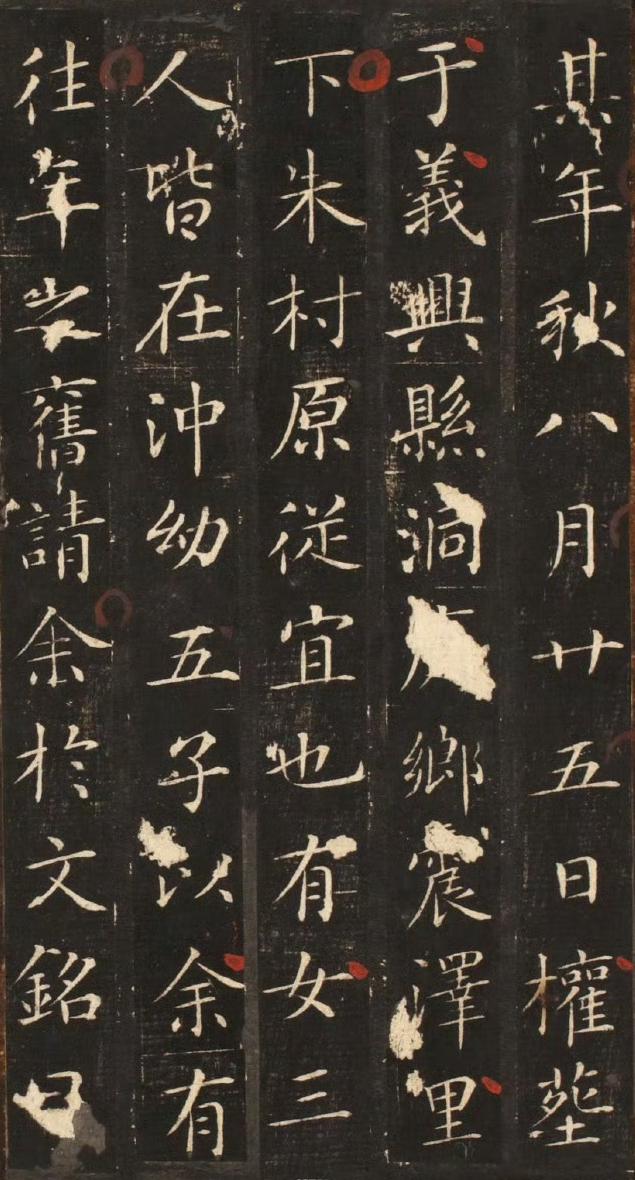 其年秋八月廿五日權塟
于義興縣洞鄉震澤里
下朱村原從宜也有女三
人皆在沖幼五子以余有
往年舊請余於文銘曰